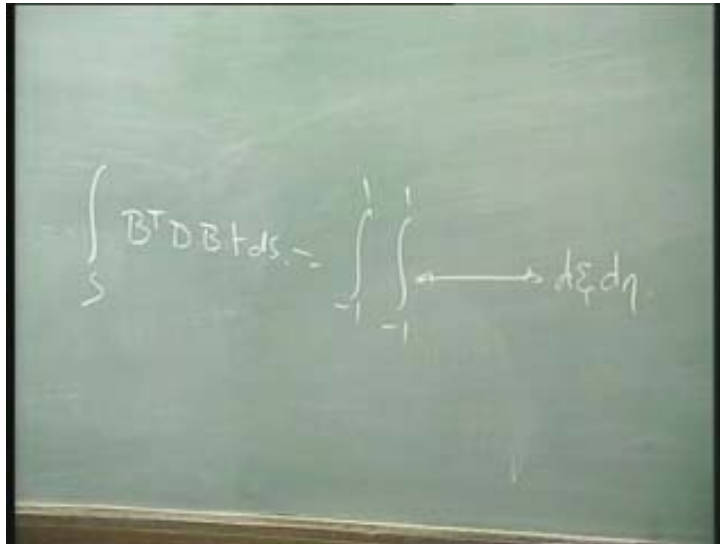 ∫_S BᵀDB t ds. = ∫_{-1}^{1} ∫_{-1}^{1} ⟷ dξ dη.